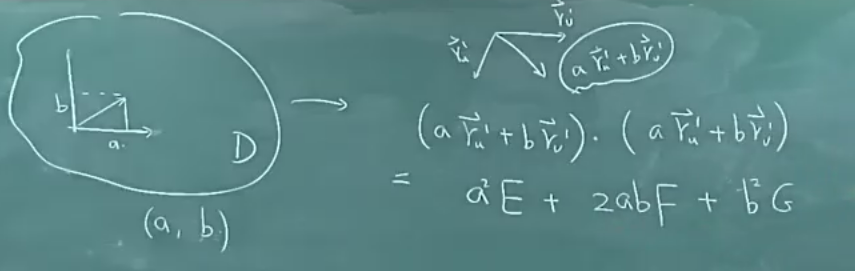 b
a.
D
(a, b)
r⃗'ᵥ
r⃗'ᵤ
a r⃗'ᵤ + b r⃗'ᵥ
(a r⃗'ᵤ + b r⃗'ᵥ) · (a r⃗'ᵤ + b r⃗'ᵥ)
= a²E + 2abF + b²G